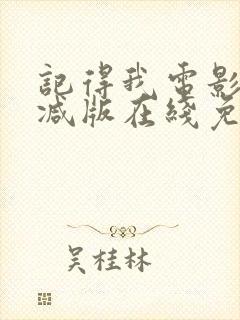 記得我電影
减版在綫免
吴桂林